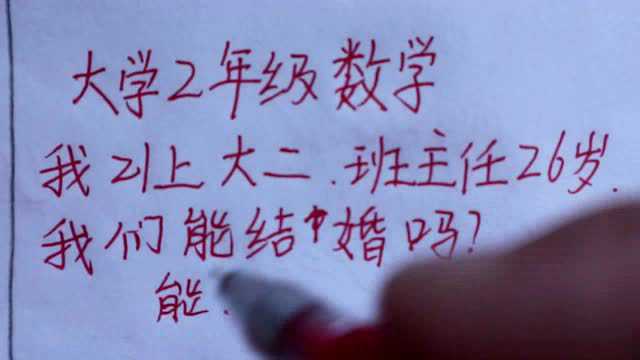 大学2年级数学
我21上大二.班主任26岁.
我们能结婚吗?
能.